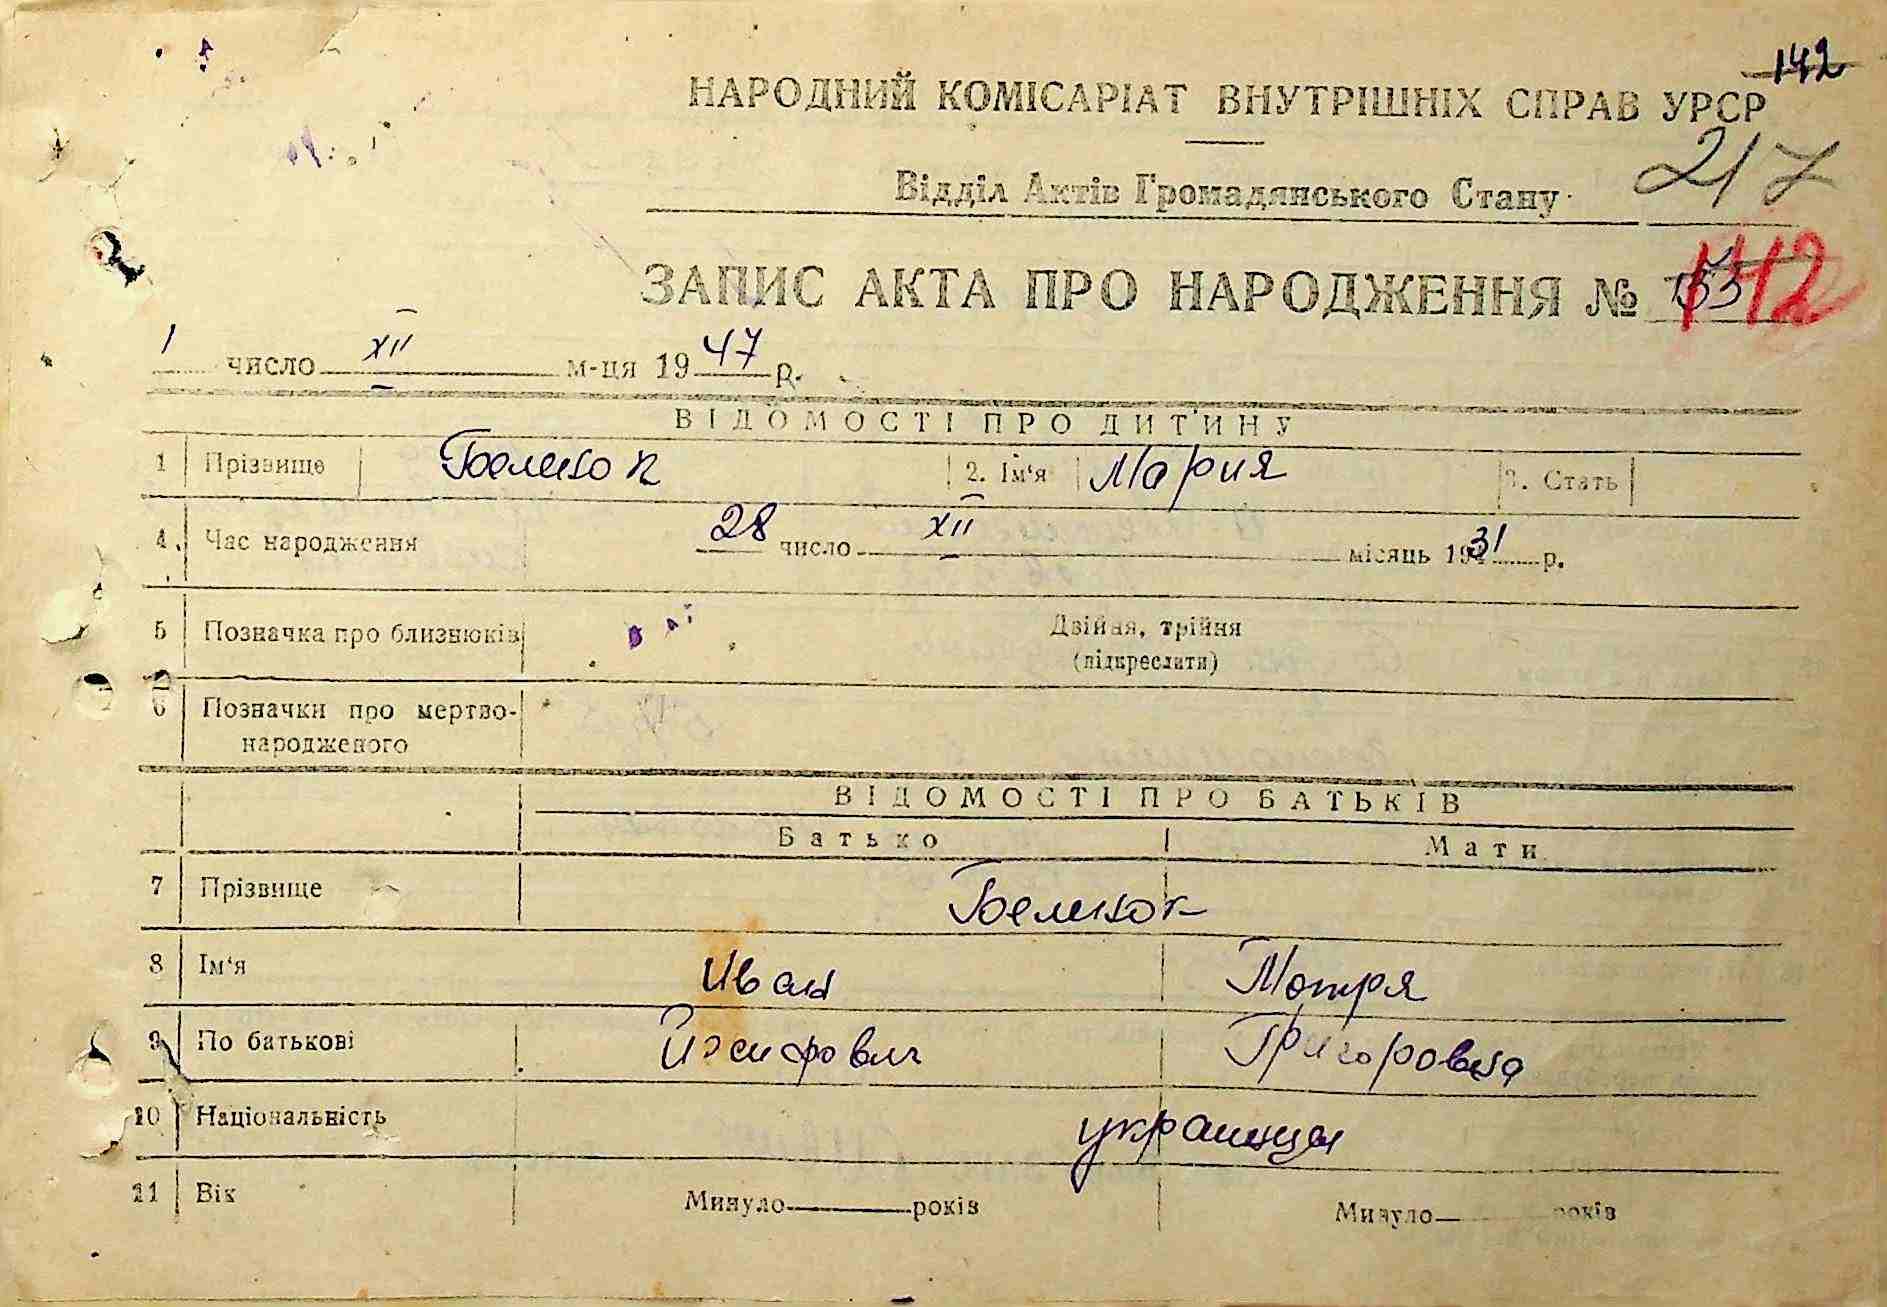 142
НАРОДНИЙ КОМІСАРІАТ ВНУТРІШНІХ СПРАВ УРСР
217
Відділ Актів Громадянського Стану
ЗАПИС АКТА ПРО НАРОДЖЕННЯ № 142
1 число XII м-ця 1947 р.
ВІДОМОСТІ ПРО ДИТИНУ
1 Прізвище 2. Ім'я Мария 3. Стать
4. Час народження 28 число XII місяць 1931 р.
5 Позначка про близнюків Двійня, трійня
(підкреслити)
6 Позначки про мертво-
народженого
ВІДОМОСТІ ПРО БАТЬКІВ
Батько Мати
7 Прізвище
8 Ім'я Иван Мотря
9 По батькові Иосифович Григоровна
10 Національність украинцы
11 Вік Минуло років Минуло років